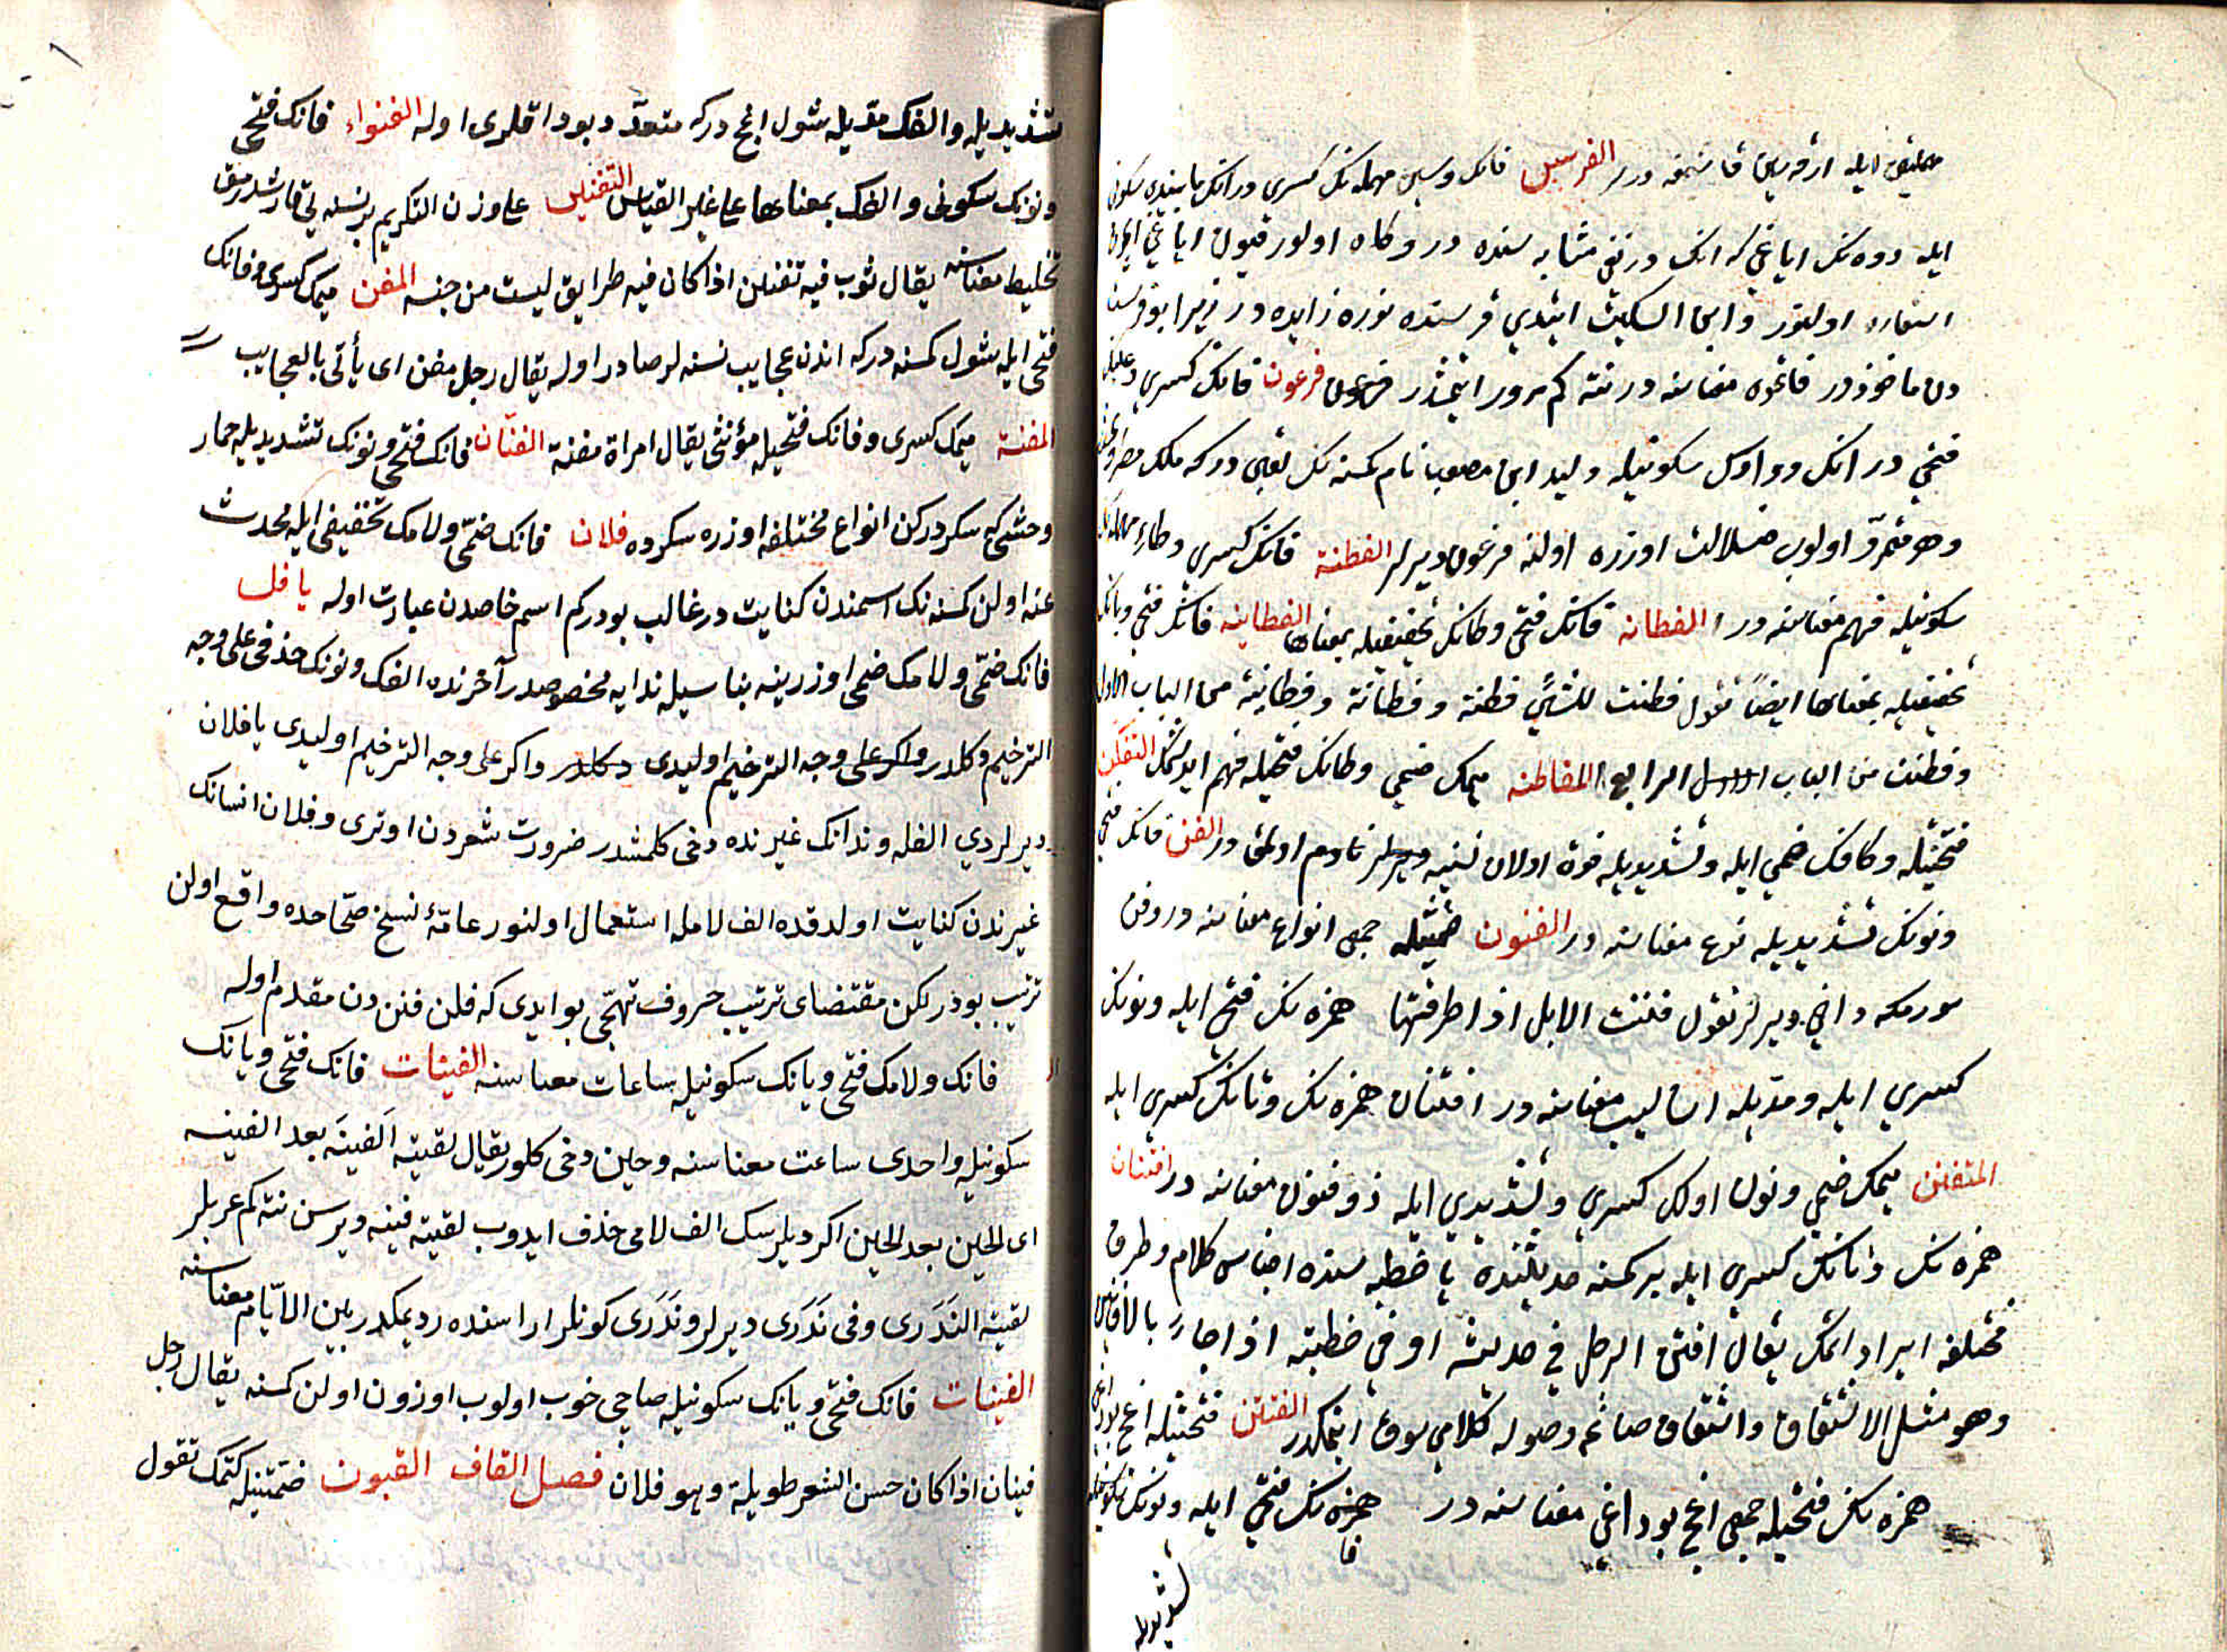 ايله ارقه سی قاشمقدر الفرسن فانك وسين مهمله نك كسری و رانك ما بينده سكونی
ايله دوه نك اياغی كه انك درنق مثابه سنده در و كاه اولور قيون اياغی ايچون
استعاره اولنور وابن السكيت ايتدی فرسنده نون زايده در زيرا بو فرست
دن ماخوذدر فرعون فانك كسری وعينك
فتحی در انك و واوك سكونيله وليد ابن مصعب نام كسنه نك لقبی در كه ملك مصر
وهر متمرّد اولوب ضلالت اوزره اولنه فرعون ديرلر الفطنة فانك كسری وطاء مهمله نك
سكونيله فهم معناسنه در الفطانه فانك فتحی وطانك تخفيفيله بمعناها الفطانيه فانك فتحی ويانك
تخفيفيله بمعناها ايضاً تقول فطنت للشیء فطنة وفطانة وفطانية من الباب الاول
وفطنت من الباب الرابع المفاطنه ميمك ضمی وطانك فتحيله فهم ايدشمك التفكن
فتحتيله وكافك ضمی ايله وتشديديله فوت اولان نسنيه نادم اولمق در الفن فانك فتحی
ونونك تشديديله نوع معناسنه در الفنون ضمتيله جمعی انواع معناسنه در وفن
سورمكه داخی ديرلر تقول فننت الابل اذا طرقتها همزه نك فتحی ايله ونونك
كسری ايله ومدّيله اساليب معناسنه در افتنان همزه نك وتانك كسری ايله
المتفنن ميمك ضمی ونون اولك كسری وتشديدی ايله ذو فنون معناسنه در افتنان
همزه نك وتانك كسری ايله بر كمسنه حديثنده يا خطبه سنده اجناس كلام وطرق
مختلفه ايراد اتمك يقال افتن الرجل فی حديثه او فی خطبته اذا جاء بالافانين
وهو مثل الاشتقاق واشتقاق صاغه وصوله كلامی سوق ايتمكدر الفنن فتحتيله اغج بوداغی
همزه نك فتحيله جمعی اغج بوداغی معناسنه در همزه نك فتحی ايله ونونك سكونيله
تشديديله
تشديديله والفك مدّيله شول اغج دركه متعدّد بوداقلری اوله الفنواء فانك فتحی
ونونك سكونی والفك بمعناها علی غير القياس التفنين علی وزن التكريم بر نسنه يی قارشدرمق
تخليط معناسنه يقال ثوب فيه تفنين اذا كان فيه طرايق ليست من جنسه المفن ميمك كسری وفانك
فتحی ايله شول كمسنه دركه اندن عجايب نسنه لر صادر اوله يقال رجل مفن ای يأتی بالعجايب
المفنة ميمك كسری وفانك فتحيله مؤنثی يقال امراة مفنة الفنّان فانك فتحی ونونك تشديديله حمار
وحشی كه سكردركن انواع مختلفه اوزره سكرده فلان فانك ضمّی ولامك تخفيفی ايله محدث
عنه اولن كسنه نك اسمندن كنايت در غالب بودركم اسم خاصدن عبارت اوله يا فل
فانك ضمّی ولامك ضمی اوزرينه بناسيله ندايه مخصوصدر آخرنده الفك ونونك حذفی علی وجه
الترخيم دكلدر واكر علی وجه الترخيم اوليدی دكلدر واكر علی وجه الترخيم اوليدی يا فلان
ديرلردی الفله وندانك غيرنده دخی كلمشدر ضرورت شعردن اوتری وفلان انسانك
غيرندن كنايت اولدقده الف لامله استعمال اولنور عامّهٔ نسخ صحّاحده واقع اولن
ترتيب بودر لكن مقتضای ترتيب حروف تهجّی بو ايدی كه فلن فنن دن مقدم اوله
فانك ولامك فتحی ويانك سكونيله ساعات معناسنه الفينات فانك فتحی ويانك
سكونيله واحدی ساعت معناسنه وحين دخی كلور يقال لقيته الفينَه بعد الفينه
ای الحين بعد الحين اكر ديلرسك الف لامی حذف ايدوب لقيته فينه ديرسن نته كم عربلر
لقيته النَدَری وفی نَدَری ديرلر ونَدَری كونلر اراسنده رديمكدر بين الايّام معناسنه
الفينات فانك فتحی ويانك سكونيله صاچی خوب اولوب اوزون اولن كمسنه يقال رجل
فينان اذا كان حسن الشعر طويلة وهو فلان فصل القاف القبون ضمّتيله كتمك تقول